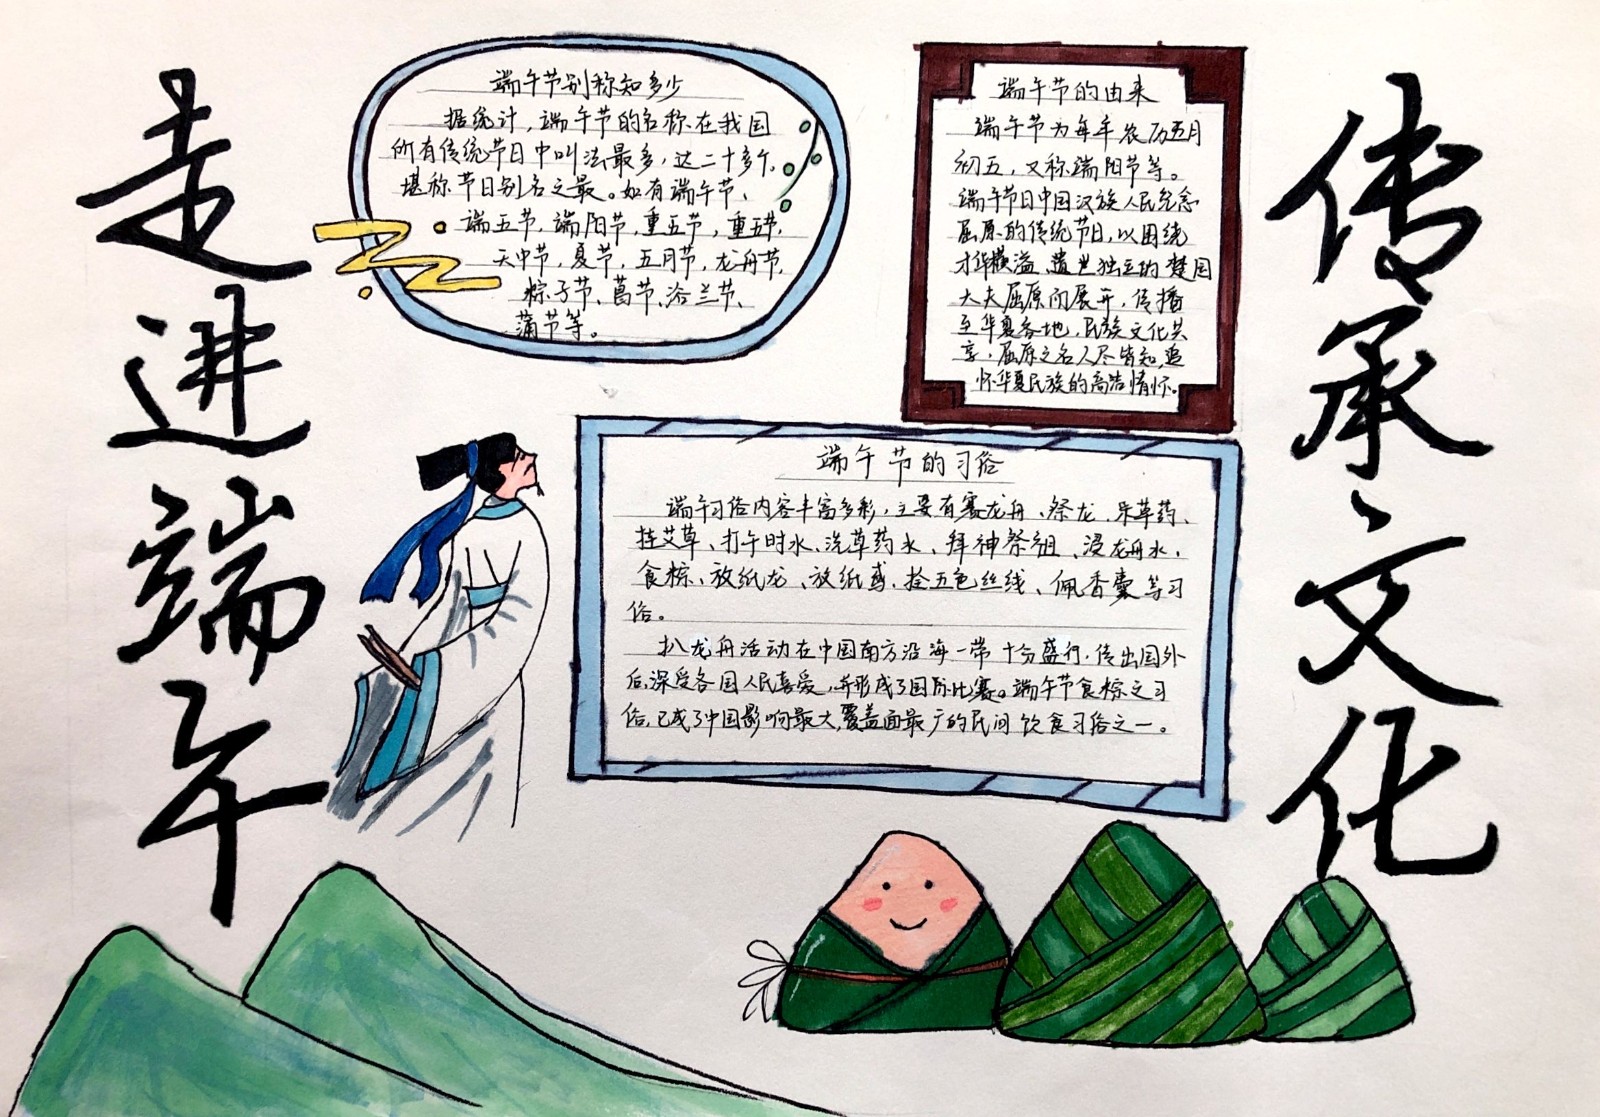 走进端午
端午节别称知多少
据统计,端午节的名称在我国
所有传统节日中叫法最多,达二十多个,
堪称节日别名之最。如有端午节、
端五节,端阳节,重五节,重五节,
天中节,夏节,五月节,龙舟节,
粽子节、菖节、浴兰节、
蒲节等。
端午节的由来
端午节为每年农历五月
初五,又称端阳节等。
端午节日中国汉族人民纪念
屈原的传统节日,以围绕
才华横溢、遗世独立的楚国
大夫屈原而展开,传播
至华夏各地,民族文化共
享,屈原之名人尽皆知,追
怀华夏民族的高洁情怀。
端午节的习俗
端午习俗内容丰富多彩,主要有赛龙舟、祭龙、采草药、
挂艾草、打午时水、洗草药水、拜神祭祖、浸龙舟水、
食粽、放纸龙、放纸鸢、拴五色丝线、佩香囊等习
俗。
扒龙舟活动在中国南方沿海一带十分盛行,传出国外
后,深受各国人民喜爱,并形成了国际比赛。端午节食粽之习
俗,已成了中国影响最大,覆盖面最广的民间饮食习俗之一。
传承文化